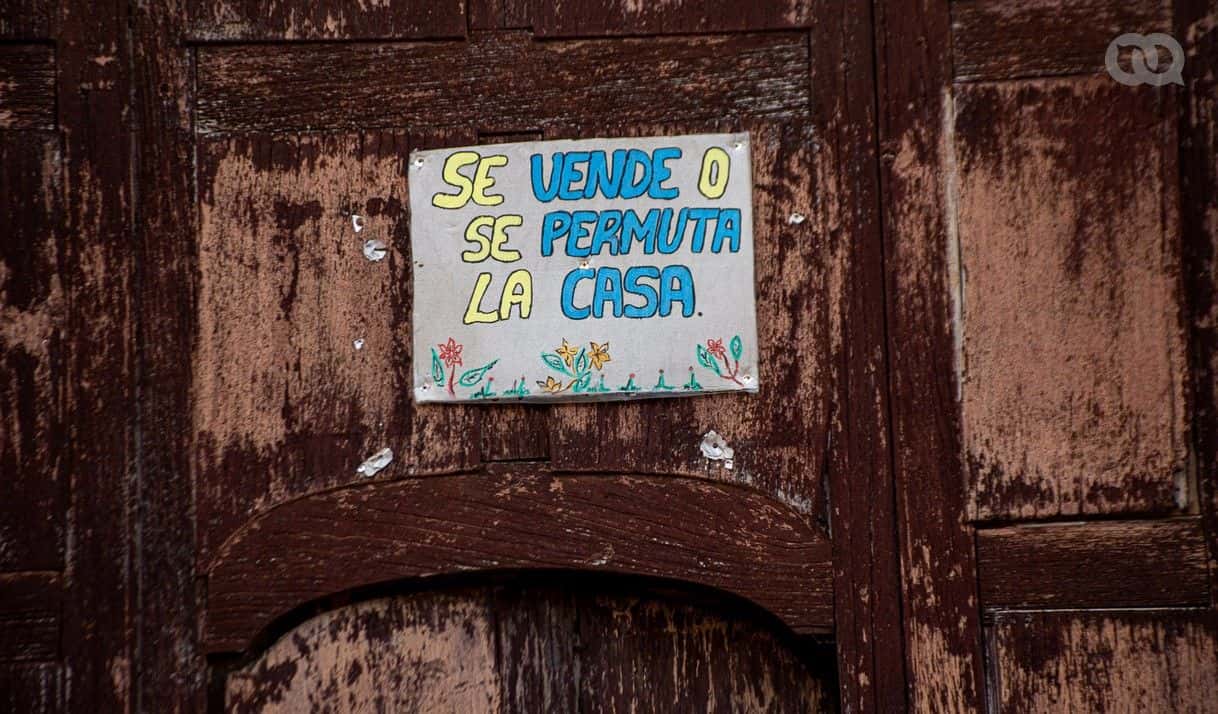 SE VENDE O
SE PERMUTA
LA CASA.